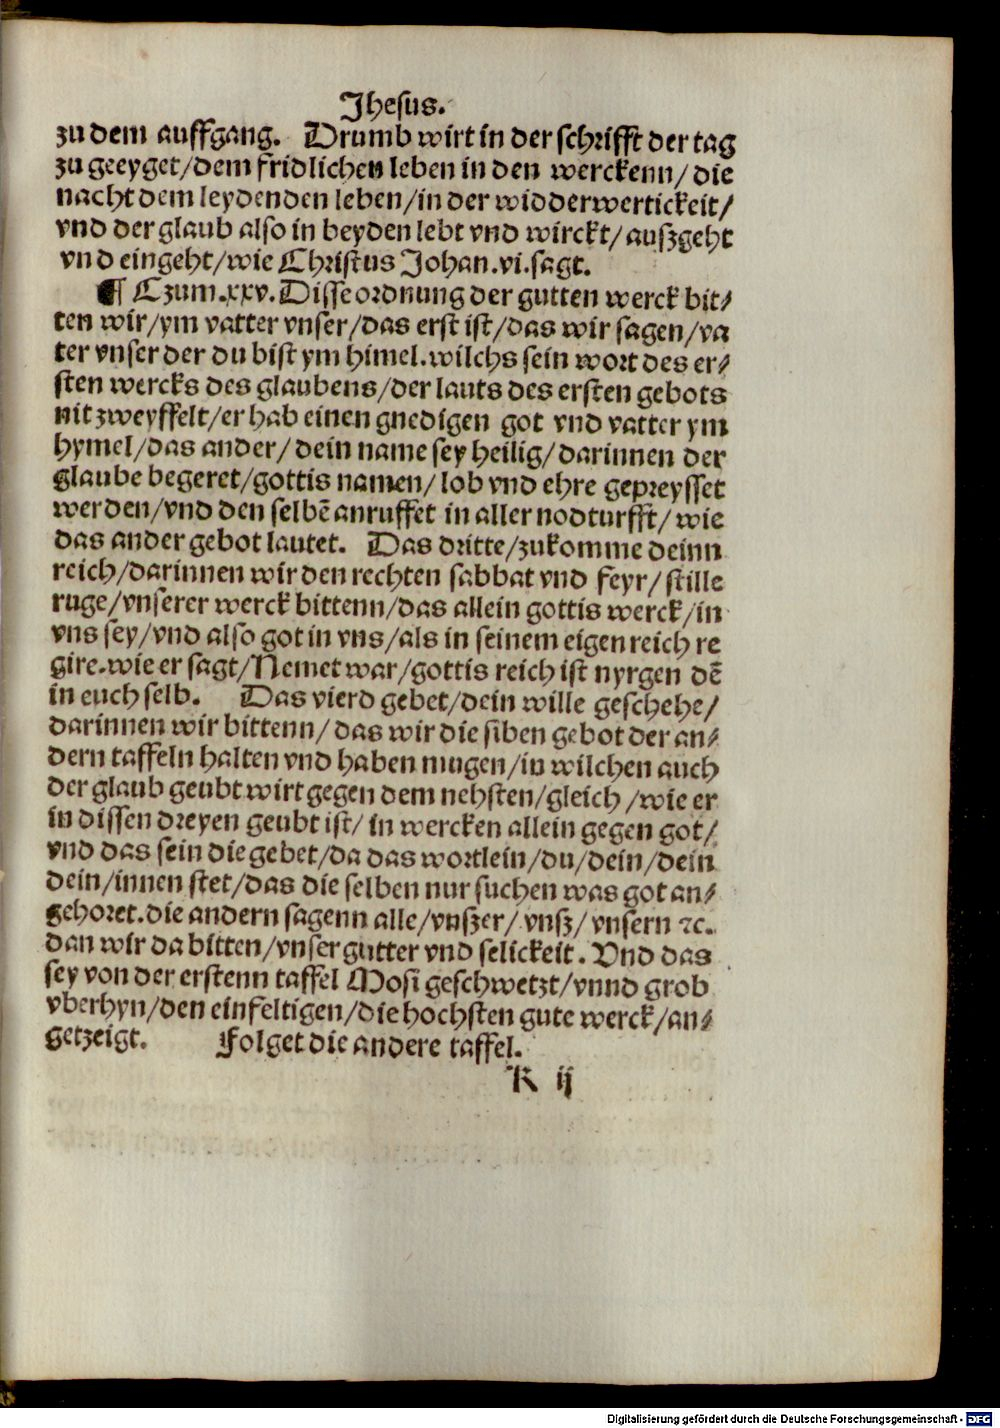 Jhesus.
zu dem auffgang. Drumb wirt in der schrifft der tag
zu geeyget/dem fridlichen leben in den werckenn/ die
nacht dem leydenden leben/in der widderwertickeit/
vnd der glaub also in beyden lebt vnd wirckt/ außgeht
vnd eingeht/wie Christus Johan.vi.sagt.
¶ Czum.xxv.Disse ordnung der gutten werck bit⸗
ten wir/ym vatter vnser/das erst ist/das wir sagen/va
ter vnser der du bist ym himel.wilchs sein wort des er⸗
sten wercks des glaubens/der lauts des ersten gebots
nit zweyffelt/er hab einen gnedigen got vnd vatter ym
hymel/das ander/ dein name sey heilig/ darinnen der
glaube begeret/gottis namen/ lob vnd ehre gepreysset
werden/vnd den selbē anruffet in aller nodturfft/ wie
das ander gebot lautet. Das dritte/zukomme deinn
reich/darinnen wir den rechten sabbat vnd feyr/ stille
ruge/vnserer werck bittenn/das allein gottis werck/in
vns sey/vnd also got in vns/als in seinem eigen reich re
gire.wie er sagt/Nemet war/gottis reich ist nyrgen dē
in euch selb. Das vierd gebet/dein wille geschehe/
darinnen wir bittenn/ das wir die siben gebot der an⸗
dern taffeln halten vnd haben mugen/in wilchen auch
der glaub geubt wirt gegen dem nehsten/gleich /wie er
in dissen dreyen geubt ist/ in wercken allein gegen got/
vnd das sein die gebet/da das wortlein/du/dein/dein
dein/innen stet/das die selben nur suchen was got an⸗
gehoret.die andern sagenn alle/vnßer/ vnß/ vnsern ⁊c.
dan wir da bitten/vnser gutter vnd selickeit. Vnd das
sey von der erstenn taffel Mosi geschwetzt/vnnd grob
vberhyn/den einfeltigen/die hochsten gute werck/an⸗
getzeigt. Folget die andere taffel.
K ij
Digitalisierung gefördert durch die Deutsche Forschungsgemeinschaft - DFG